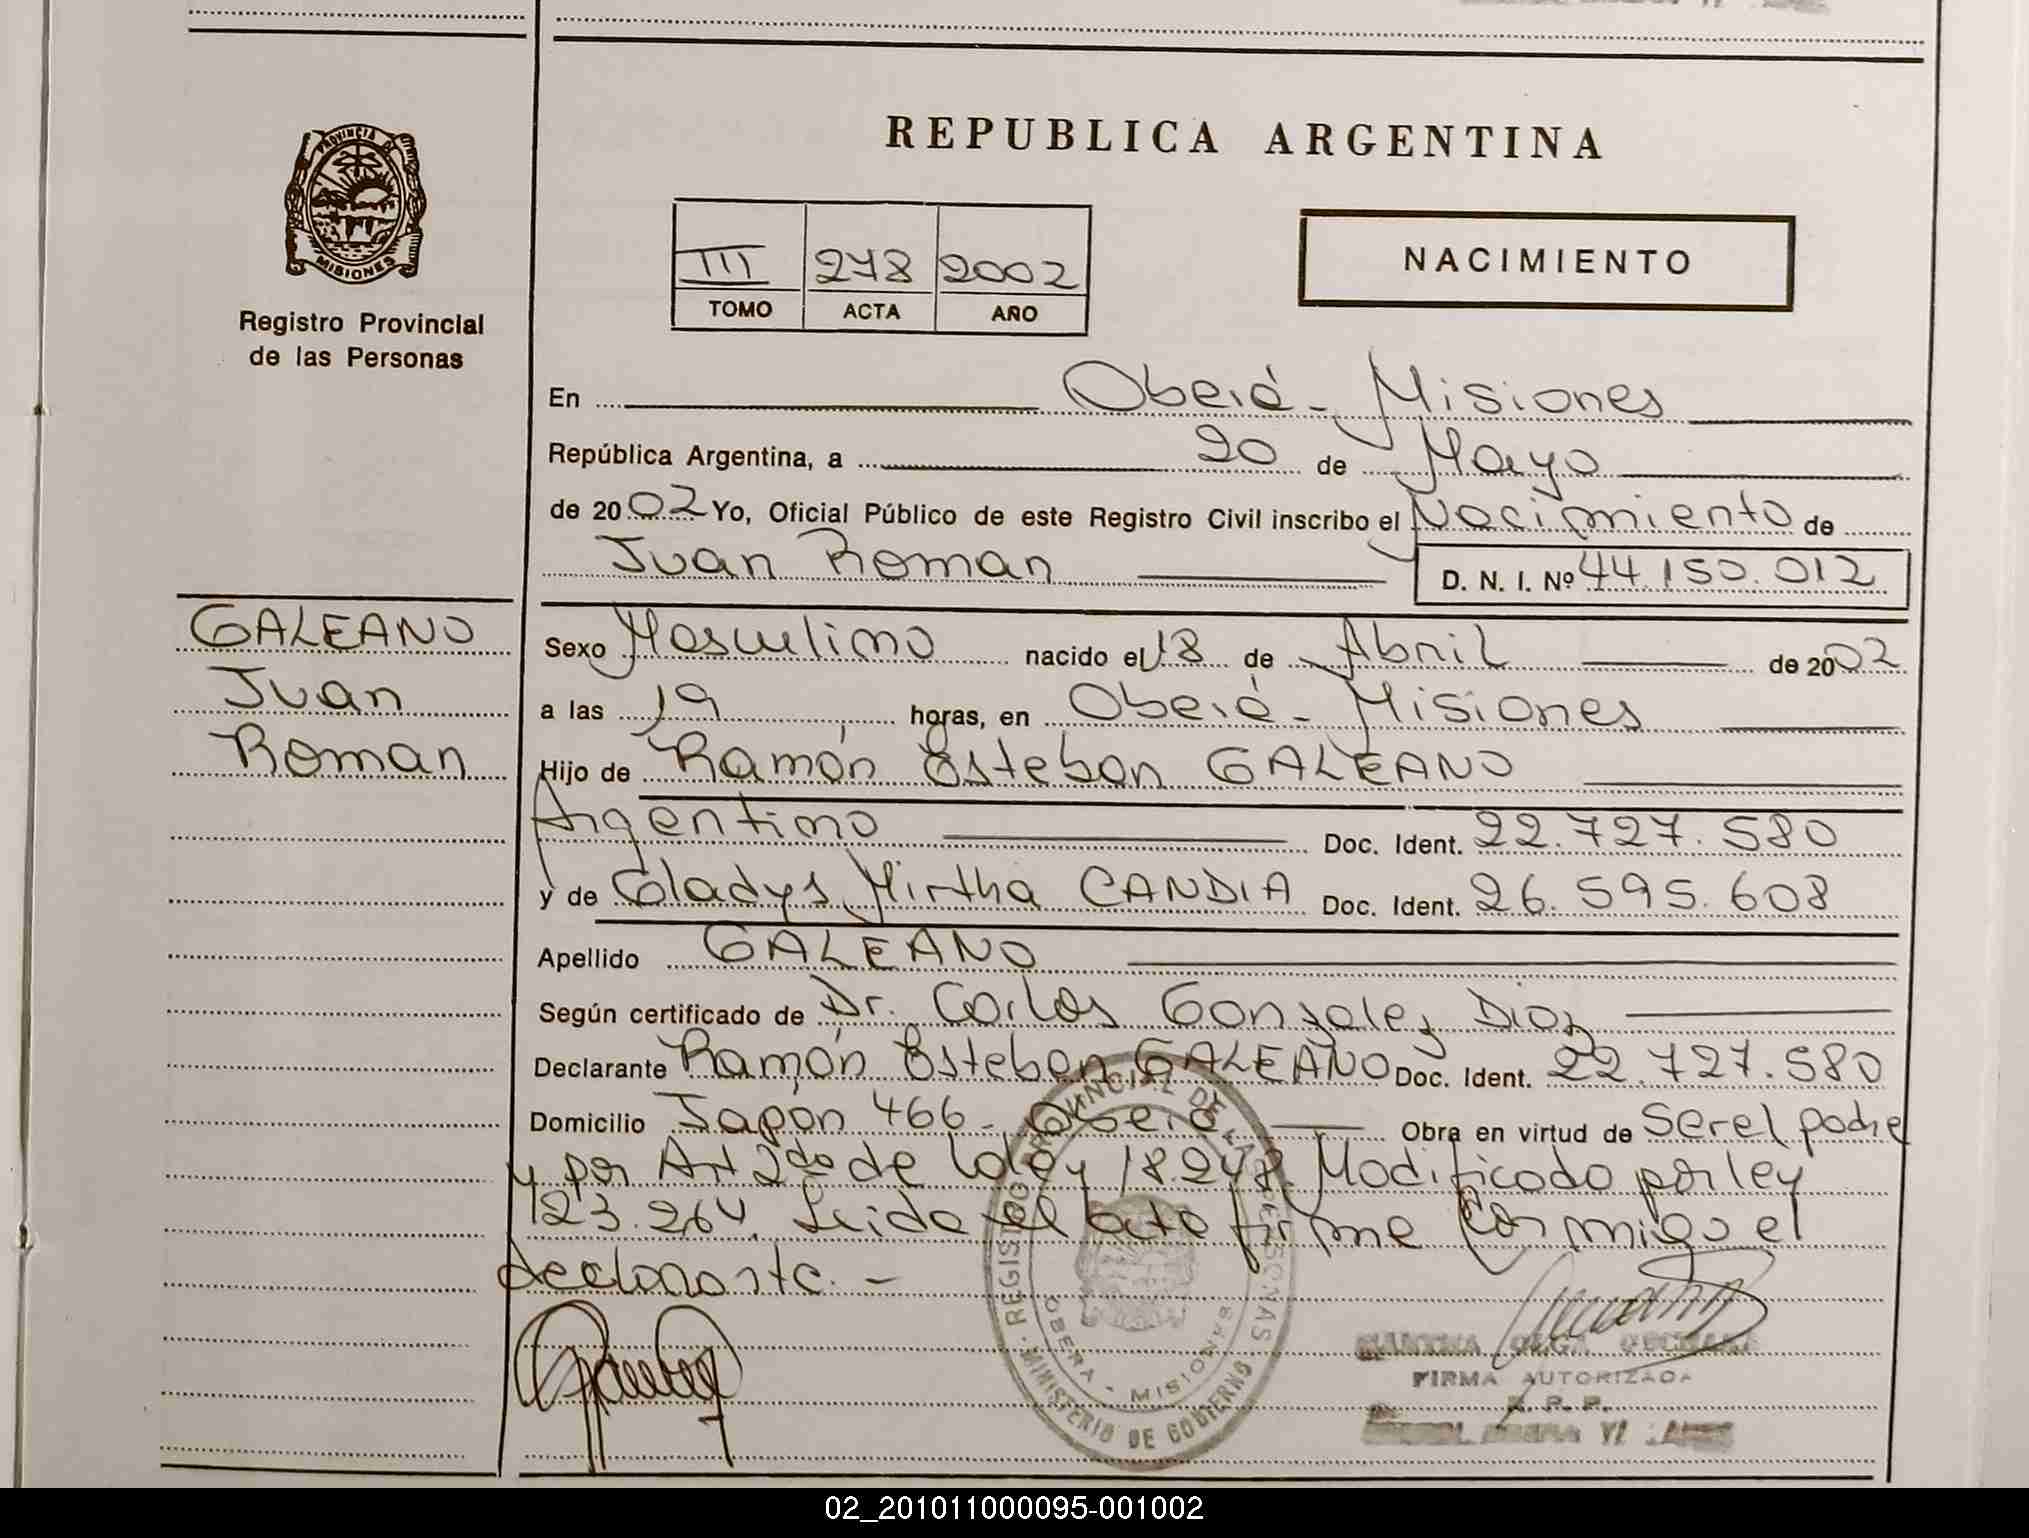 REPUBLICA ARGENTINA
PROVINCIA DE
MISIONES
Registro Provincial
de las Personas
III 278 2002
TOMO ACTA AÑO
NACIMIENTO
En Oberá - Misiones
República Argentina, a 20 de Mayo
de 2002 Yo, Oficial Público de este Registro Civil inscribo el Nacimiento de
Juan Roman D. N. I. Nº 44.150.012
GALEANO
Juan
Roman
Sexo Masculino nacido el 18 de Abril de 2002
a las 19 horas, en Oberá - Misiones
Hijo de Ramón Esteban GALEANO
Argentino Doc. Ident. 22.727.580
y de Gladys Mirtha CANDIA Doc. Ident. 26.595.608
Apellido GALEANO
Según certificado de Dr. Carlos Gonzalez Diaz
Declarante Ramón Esteban GALEANO Doc. Ident. 22.727.580
Domicilio Japón 466 - Oberá Obra en virtud de Ser el padre
y por Art 2do de la ley 18.248. Modificado por ley
23.264. Leida el acta firma conmigo el
declarante. -
REGISTRO PROVINCIAL DE LAS PERSONAS
OBERA - MISIONES
MINISTERIO DE GOBIERNO
OLGA
FIRMA AUTORIZADA
R. P. P.
02_201011000095-001002